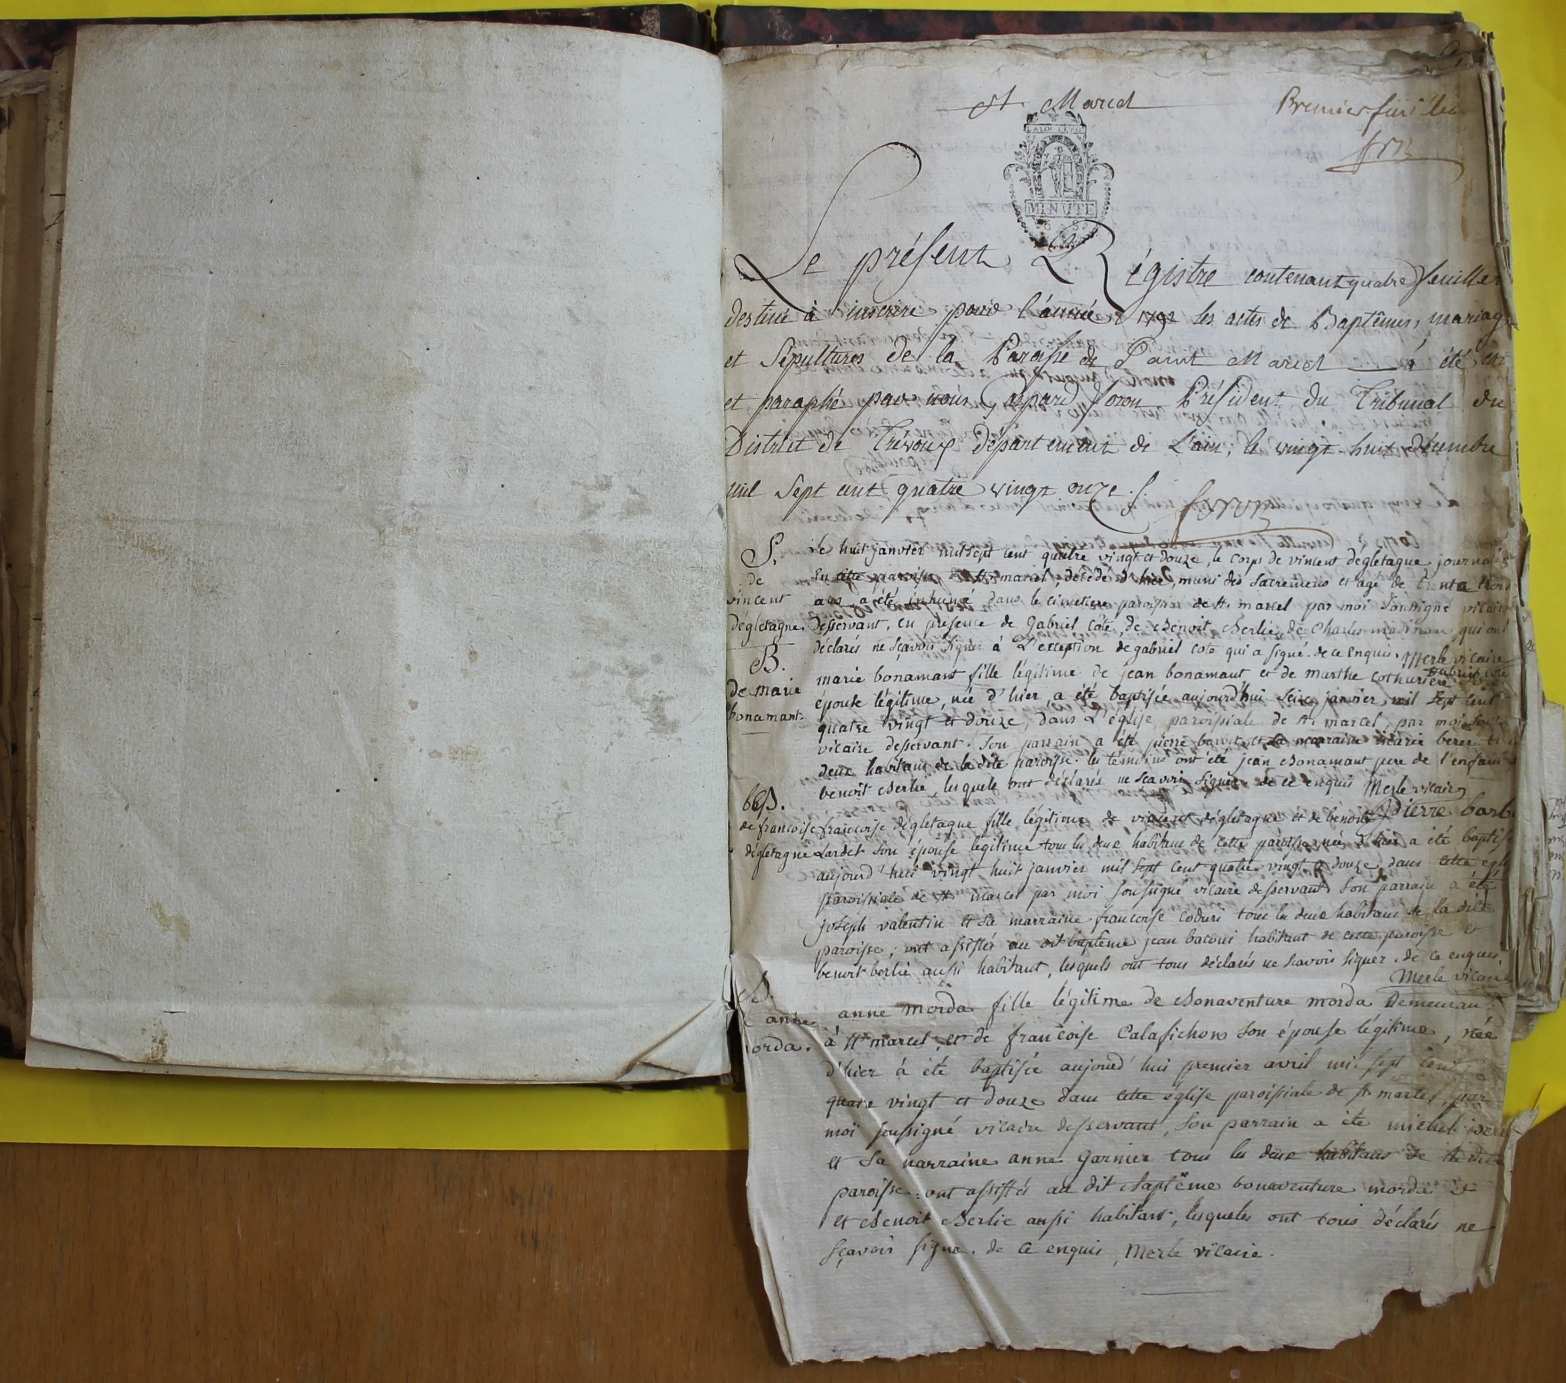 St Marcel
Premier feuillet
MINUTE
Le présent Régistre contenant quatre feuillets
destiné à inscrire pour l'année 1792 les actes de Baptêmes, mariag
et Sépultures de la Paroisse de Saint Marcel à été
et paraphé par nous Gaspard Président du Tribunal du
District de Trévoux département de L'ain, le vingt-huit décembre
mil Sept cent quatre vingt onze
S.
de
vincent
dégletagne.
Le huit janvier mil sept cent quatre vingt et douze, le corps de vincent dégletagne journal
en cette paroisse de St marcel, décédé d'hier, muni des Sacremens et agé de trente trois
ans a été inhumé dans le cimetiere paroissial de St. marcel par moi Soussigné vicaire
desservant, en presence de Gabriel coté, de Benoit Berlie, de Charles qui ont
déclarés ne sçavoir signer à L'exception de gabriel coté qui a signé. de ce Enquis. Merle vicaire
gabriel coté
B.
de marie
bonamant.
marie bonamant fille légitime de jean bonamant et de marthe cothuriere
épouse légitime, née d'hier, a été baptisée aujourd'hui Seize janvier mil Sept cent
quatre vingt et douze, dans L'église paroissiale de St. marcel, par moi
vicaire desservant. Son parrain a été pierre et Sa marraine marie
deux habitans de la dite paroisse. les témoins ont été jean Bonamant pere de l'enfant
benoit Berlié, lesquels ont déclarés ne sçavoir Signer de ce enquis Merle vicaire
Pierre
B.
de francoise
dégletagne
francoise dégletagne fille légitime de vincent dégletagne et de benoite
Lardet Son épouse légitime tous les deux habitans de cette paroisse, née d'hier a été baptisé
aujourd'hui vingt huit janvier mil Sept cent quatre vingt et douze, dans cette égli
paroissiale de St marcel par moi Soussigné vicaire desservant, Son parrain a été
joseph valentin et Sa marraine francoise coduri tous les deux habitans de la dite
paroisse; ont assistés au dit baptême jean baconi habitant de cette paroisse et
benoit berlié aussi habitant, lesquels ont tous déclarés ne sçavoir Signer. de ce enquis
Merle vicaire
B.
anne
orda.
anne morda fille légitime de Bonaventure morda Demeurau
à St marcel et de francoise Calafichon Son épouse légitime, née
d'hier à été baptisée aujourd'hui premier avril mil sept cent
quatre vingt et douze dans cette église paroissiale de St marcel, par
moi soussigné vicaire desservant, Son parrain a été michel
et Sa marraine anne garnier tous les deux habitans de la dite
paroisse. ont assistés au dit Baptême bonaventure morda
et Benoit Berlie aussi habitant, lesquels ont tous déclarés ne
sçavoir signe. de ce enquis, Merle vicaire.